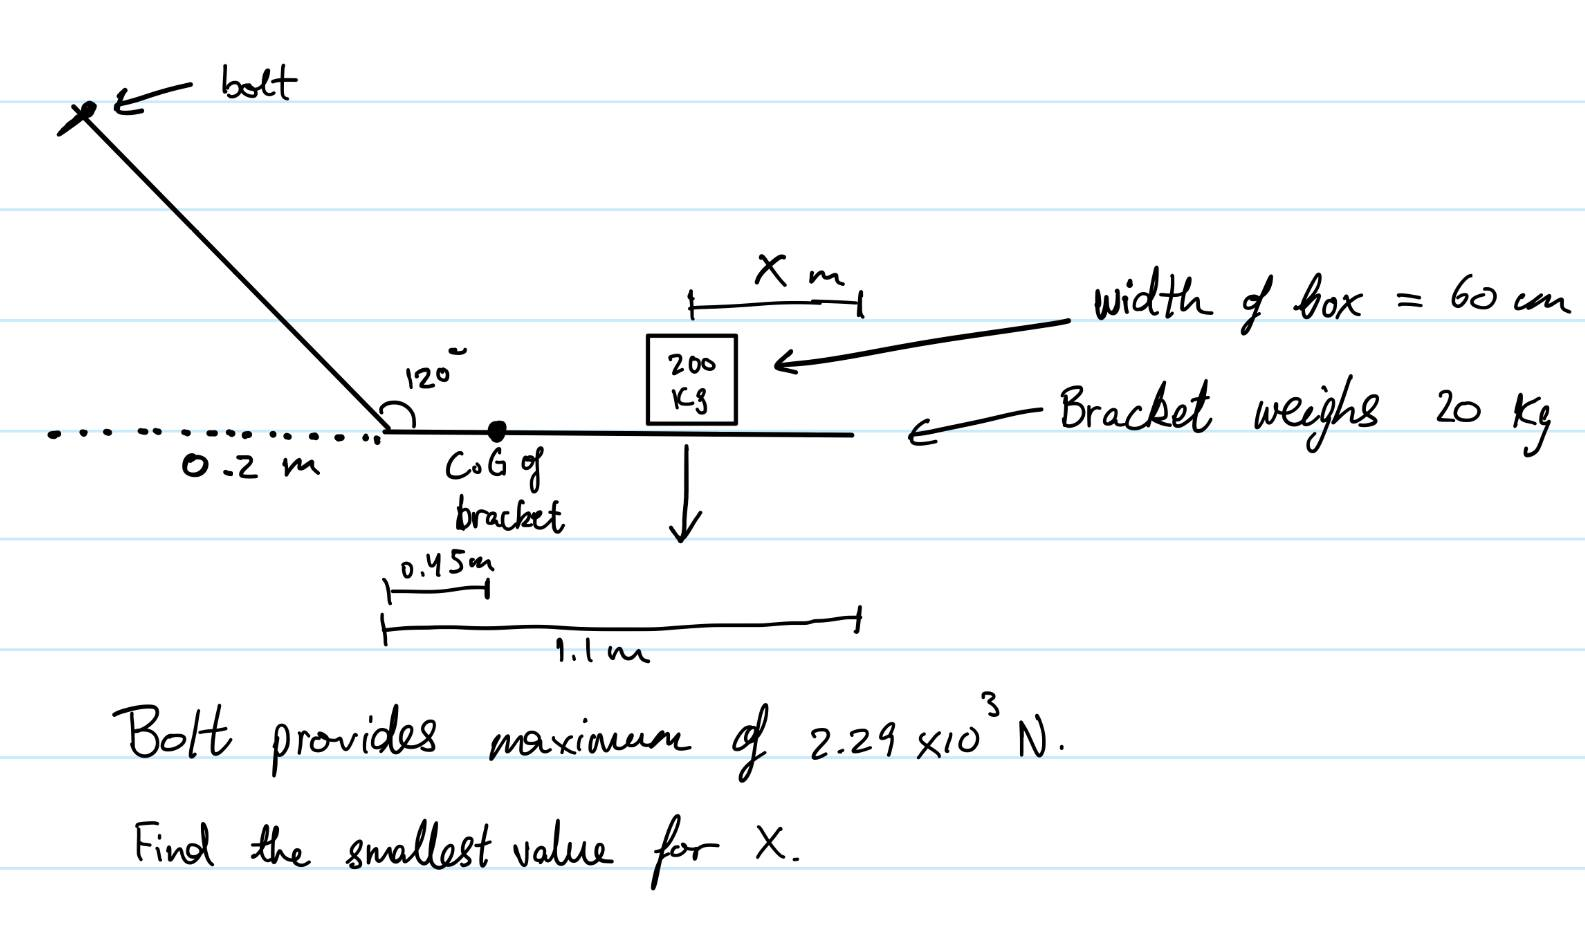 bolt
X m
width of box = 60 cm
200
Kg
120°
Bracket weighs 20 Kg
0.2 m
CoG of
bracket
0.45m
1.1m
Bolt provides maximum of 2.29 x10³ N.
Find the smallest value for X.